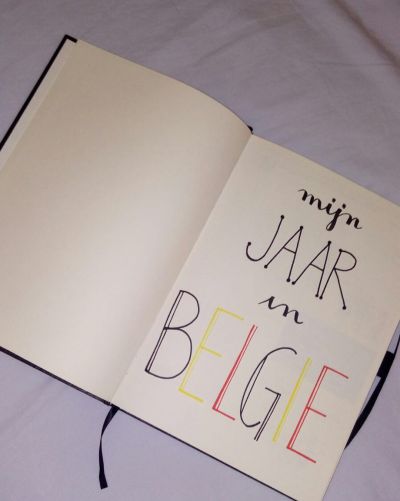 mijn
JAAR
in
BELGIE